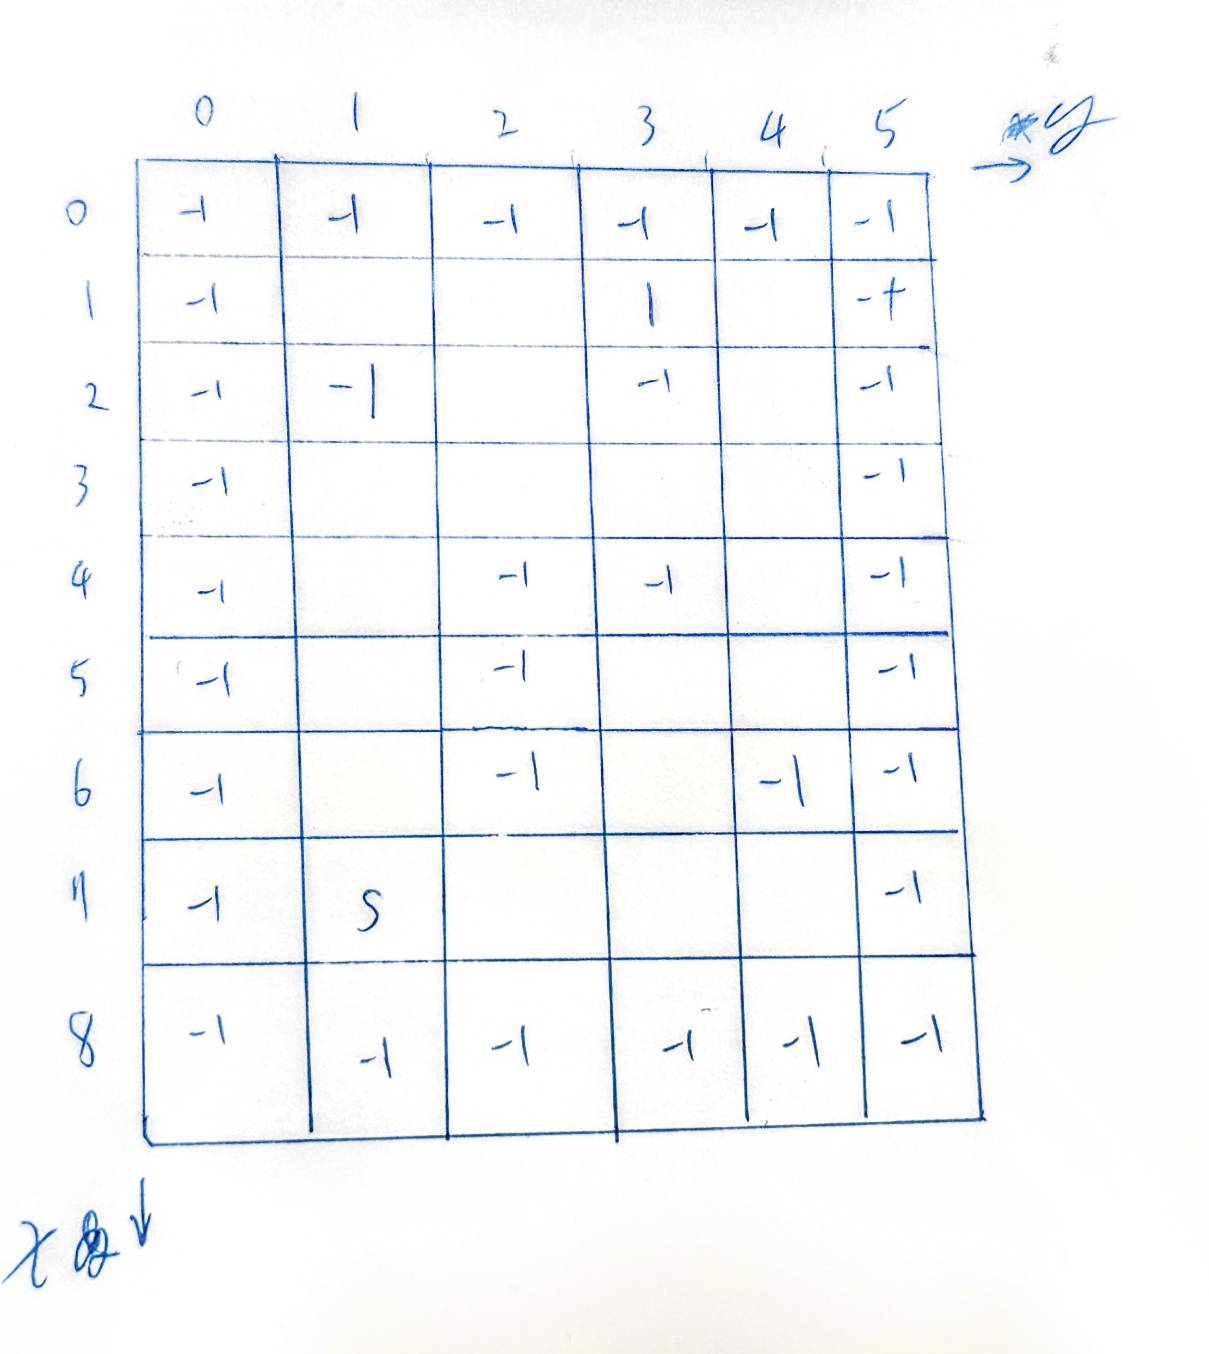 0 1 2 3 4 5 y
→
0 -1 -1 -1 -1 -1 -1
1 -1 1 -+
2 -1 -1 -1 -1
3 -1 -1
4 -1 -1 -1 -1
5 -1 -1 -1
6 -1 -1 -1 -1
7 -1 S -1
8 -1 -1 -1 -1 -1 -1
x ↓